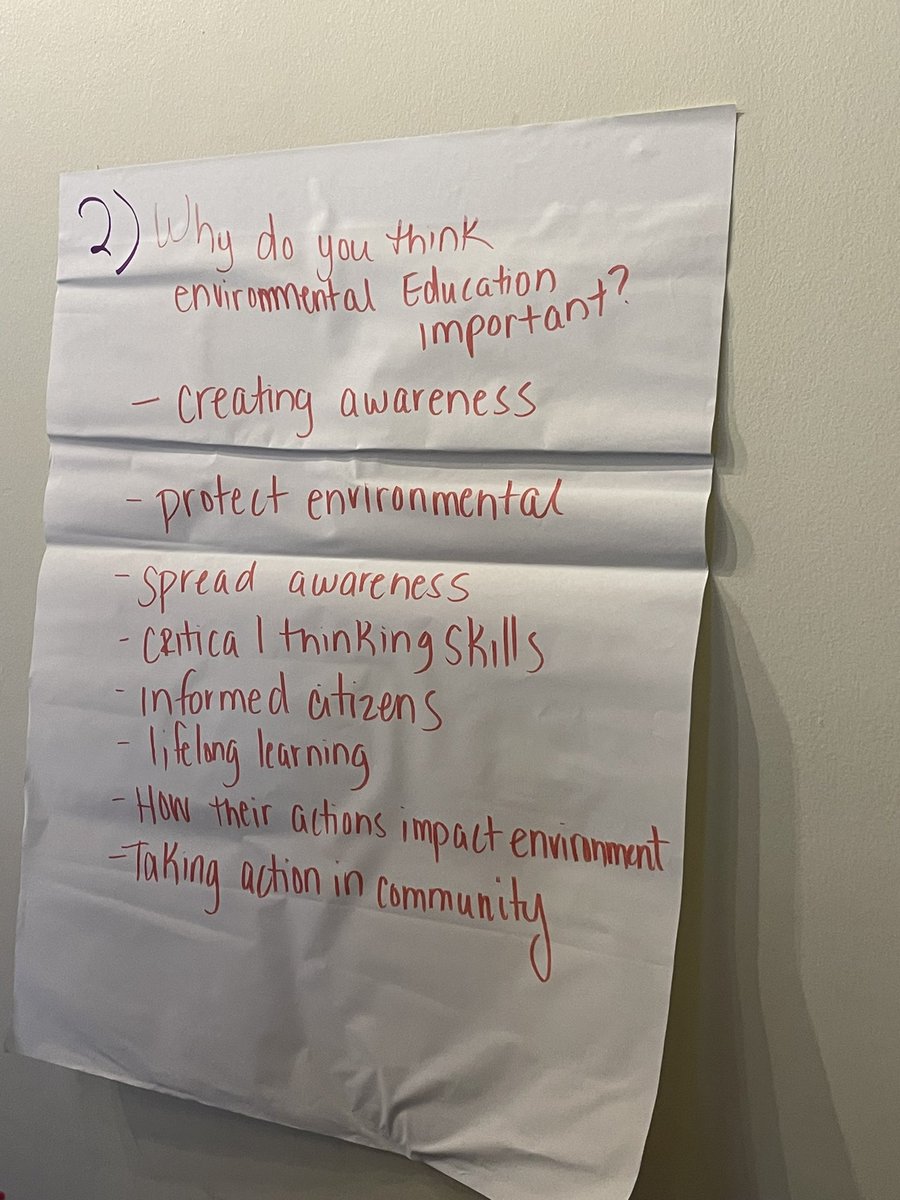 2) Why do you think
environmental Education
important?
- creating awareness
- protect environmental
- spread awareness
- critical thinking skills
- informed citizens
- lifelong learning
- How their actions impact environment
- Taking action in community